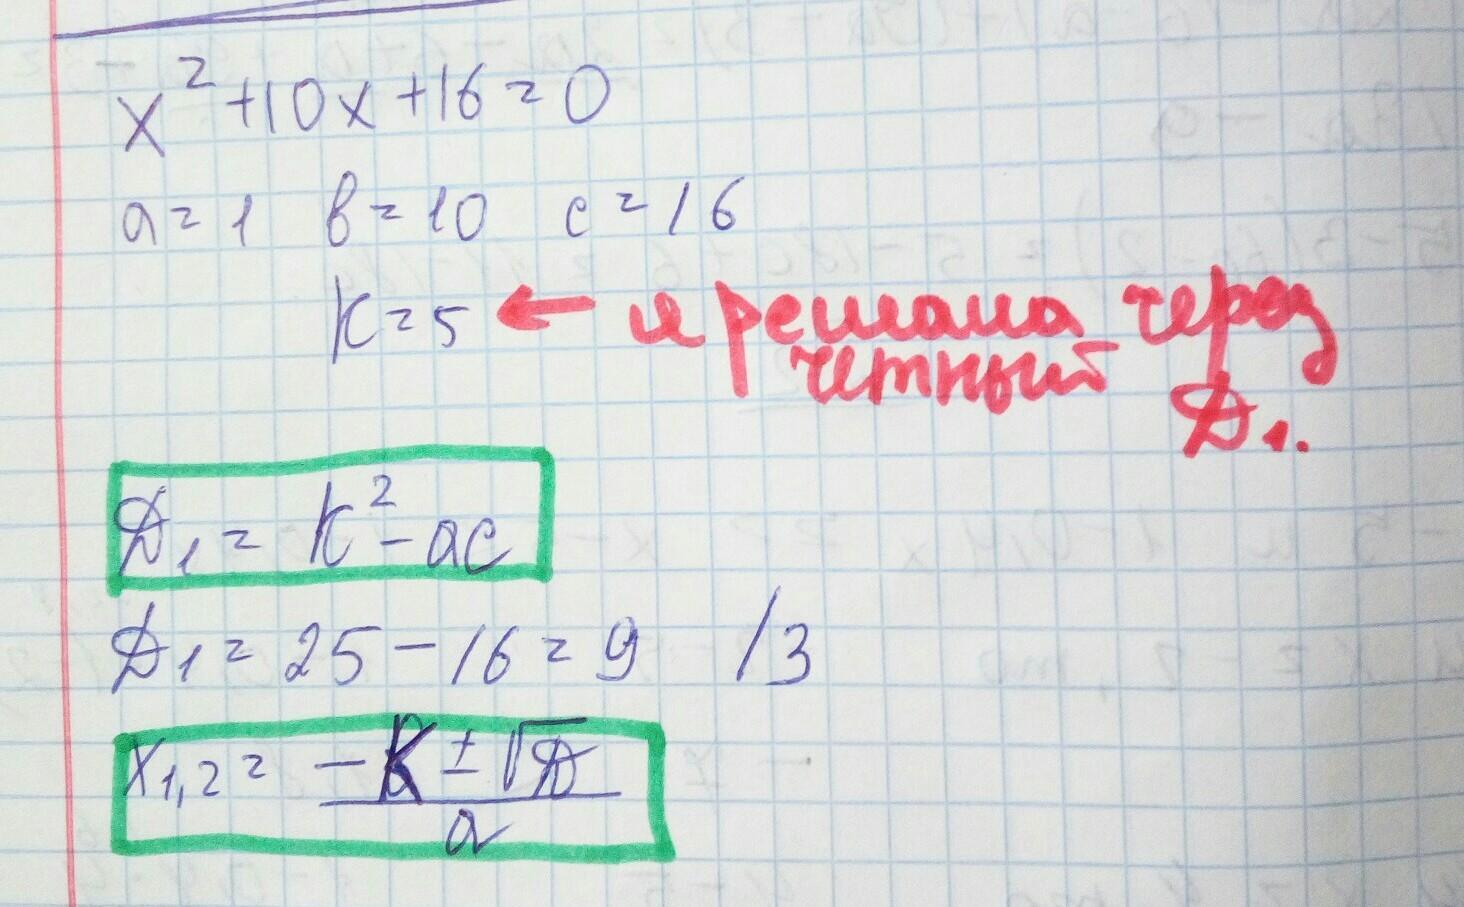 x² + 10x + 16 = 0
a = 1 в = 10 c = 16
k = 5 ← я решала через
четный
Д₁.
Д₁ = k² - ac
Д₁ = 25 - 16 = 9 /3
x₁,₂ = (-k ± √Д) / a